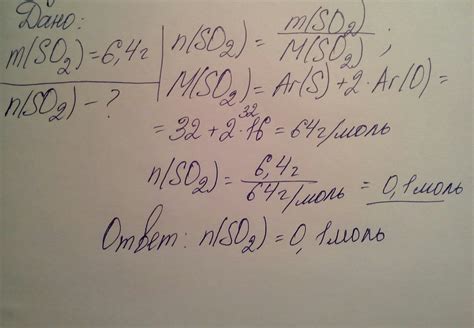 Дано:
m(SO₂)=6,4г
n(SO₂) - ?
n(SO₂) = m(SO₂)/M(SO₂) ;
M(SO₂) = Ar(S) + 2·Ar(O) =
32
= 32 + 2·16 = 64г/моль
n(SO₂) = 6,4г/64г/моль = 0,1моль
Ответ: n(SO₂) = 0,1моль